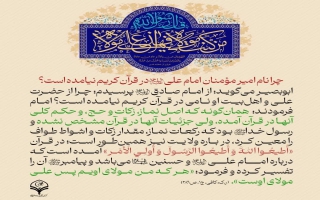 قال رسول الله
من کنت مولاه فهذا علی مولاه
چرا نام امیر مؤمنان امام علی در قرآن کریم نیامده است؟
ابوبصیر می‌گوید: از امام صادق پرسیدم: چرا از حضرت
علی و اهل‌بیت او نامی در قرآن کریم نیامده است؟ امام
فرمودند: همان‌گونه که اصل نماز، زکات و حج، و حکم کلی
آنها در قرآن آمده، ولی جزئیات آنها در قرآن مشخص نشده و
رسول خدا بود که رکعات نماز، مقدار زکات و اشواط طواف
را معین کرد، درباره ولایت نیز همین‌طور است؛ در قرآن
«اطیعوا الله و اطیعوا الرسول و اولی الأمر» آمده است که
درباره امام علی و حسنین می‌باشد و پیامبر آن را
تفسیر کرده و فرمود: «هر که من مولای اویم پس علی
مولای اوست».